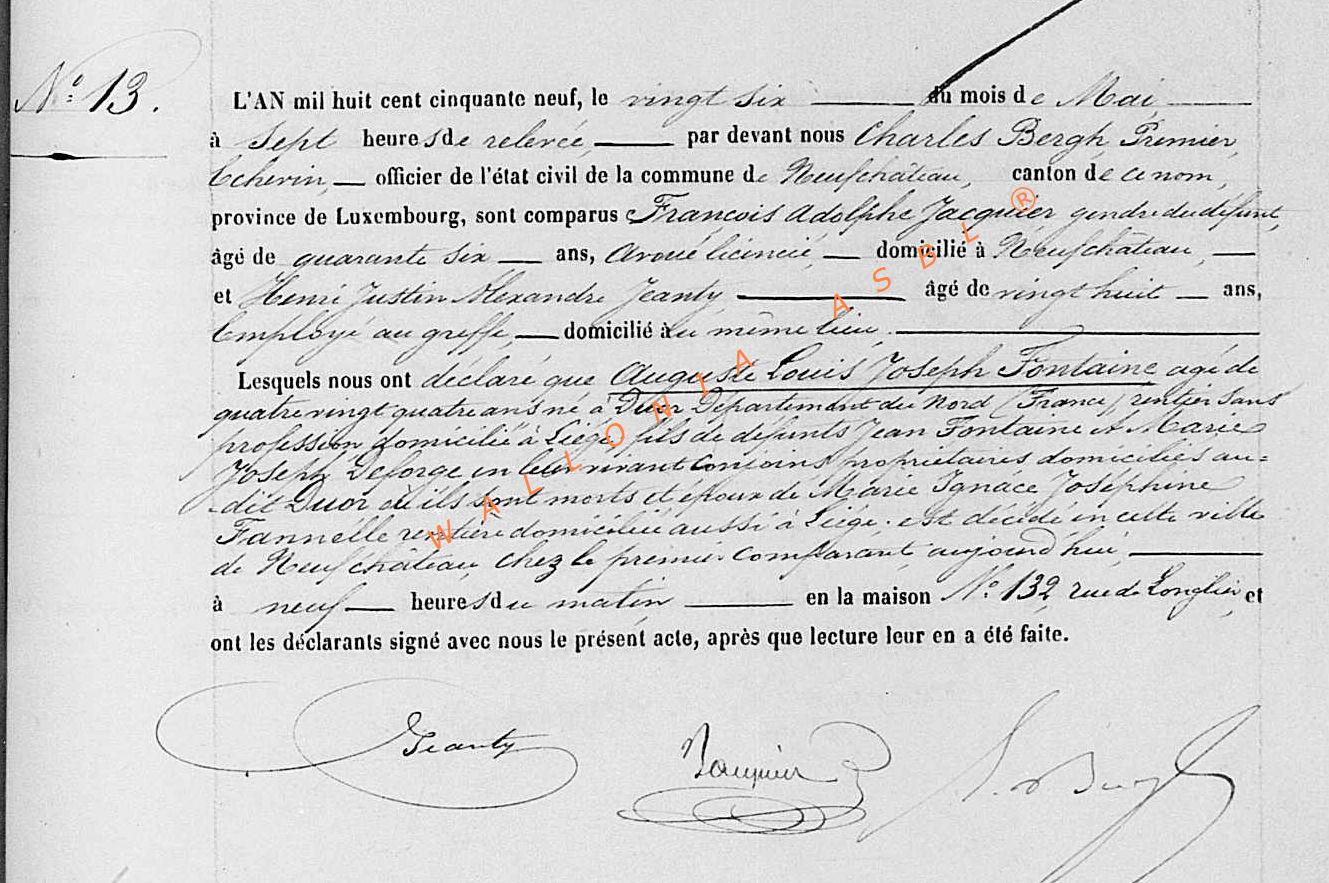 N° 13.
L'AN mil huit cent cinquante neuf, le vingt six du mois de Mai
à sept heures de relevée, par devant nous Charles Bergh Premier
Echevin, officier de l'état civil de la commune de Neufchâteau, canton de ce nom,
province de Luxembourg, sont comparus François Adolphe Jacquier gendre du défunt,
âgé de quarante six ans, avoué licencié, domicilié à Neufchâteau,
et Henri Justin Alexandre Jeanty âgé de vingt huit ans,
Employé au greffe, domicilié au même lieu.
Lesquels nous ont déclaré que Auguste Louis Joseph Fontaine agé de
quatre vingt quatre ans né à Duor Département du Nord (France) rentier sans
profession, domicilié à Liége, fils de défunts Jean Fontaine et Marie
Joseph Deforge en leur vivant conjoins propriétaires domiciliés au=
dit Duor où ils sont morts et époux de Marie Ignace Joséphine
Fannelle rentière domiciliée aussi à Liége. est décédé en cette ville
de Neufchâteau, chez le premier comparant, aujourd'hui,
à neuf heures du matin en la maison N° 132 rue de Longlier et
ont les déclarants signé avec nous le présent acte, après que lecture leur en a été faite.
Jeanty Jacquier Bergh
WALLONIA ASBL ®